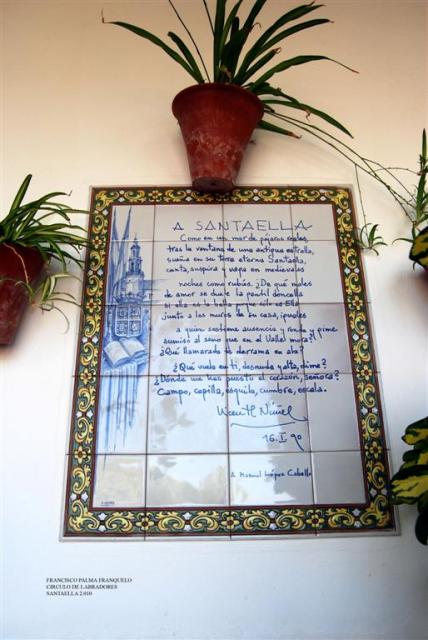 A SANTAELLA
Como en un mar de pájaros reales,
tras la ventana de una antigua estrella,
sueña en su torre eterna Santaella,
canta, suspira y vaga en medievales
noches como rubíes. ¿De qué males
de amor se duele la gentil doncella
si ella es la bella
junto a los muros de tu casa, iguales
a quien sostiene ausencia y ronda y gime
sumiso al seno que en el Valle mora?
¿Qué llamarada se derrama en ahs?
¿Qué vuela en ti, desnuda y alta, dime?
¿Dónde me has puesto el corazón, señora?
Campo, capilla, esquila, cumbre, escala.
Vicente Núñez
16.I.90
A Manuel López Cabello
FRANCISCO PALMA FRANQUELO
CIRCULO DE LABRADORES
SANTAELLA 2.010